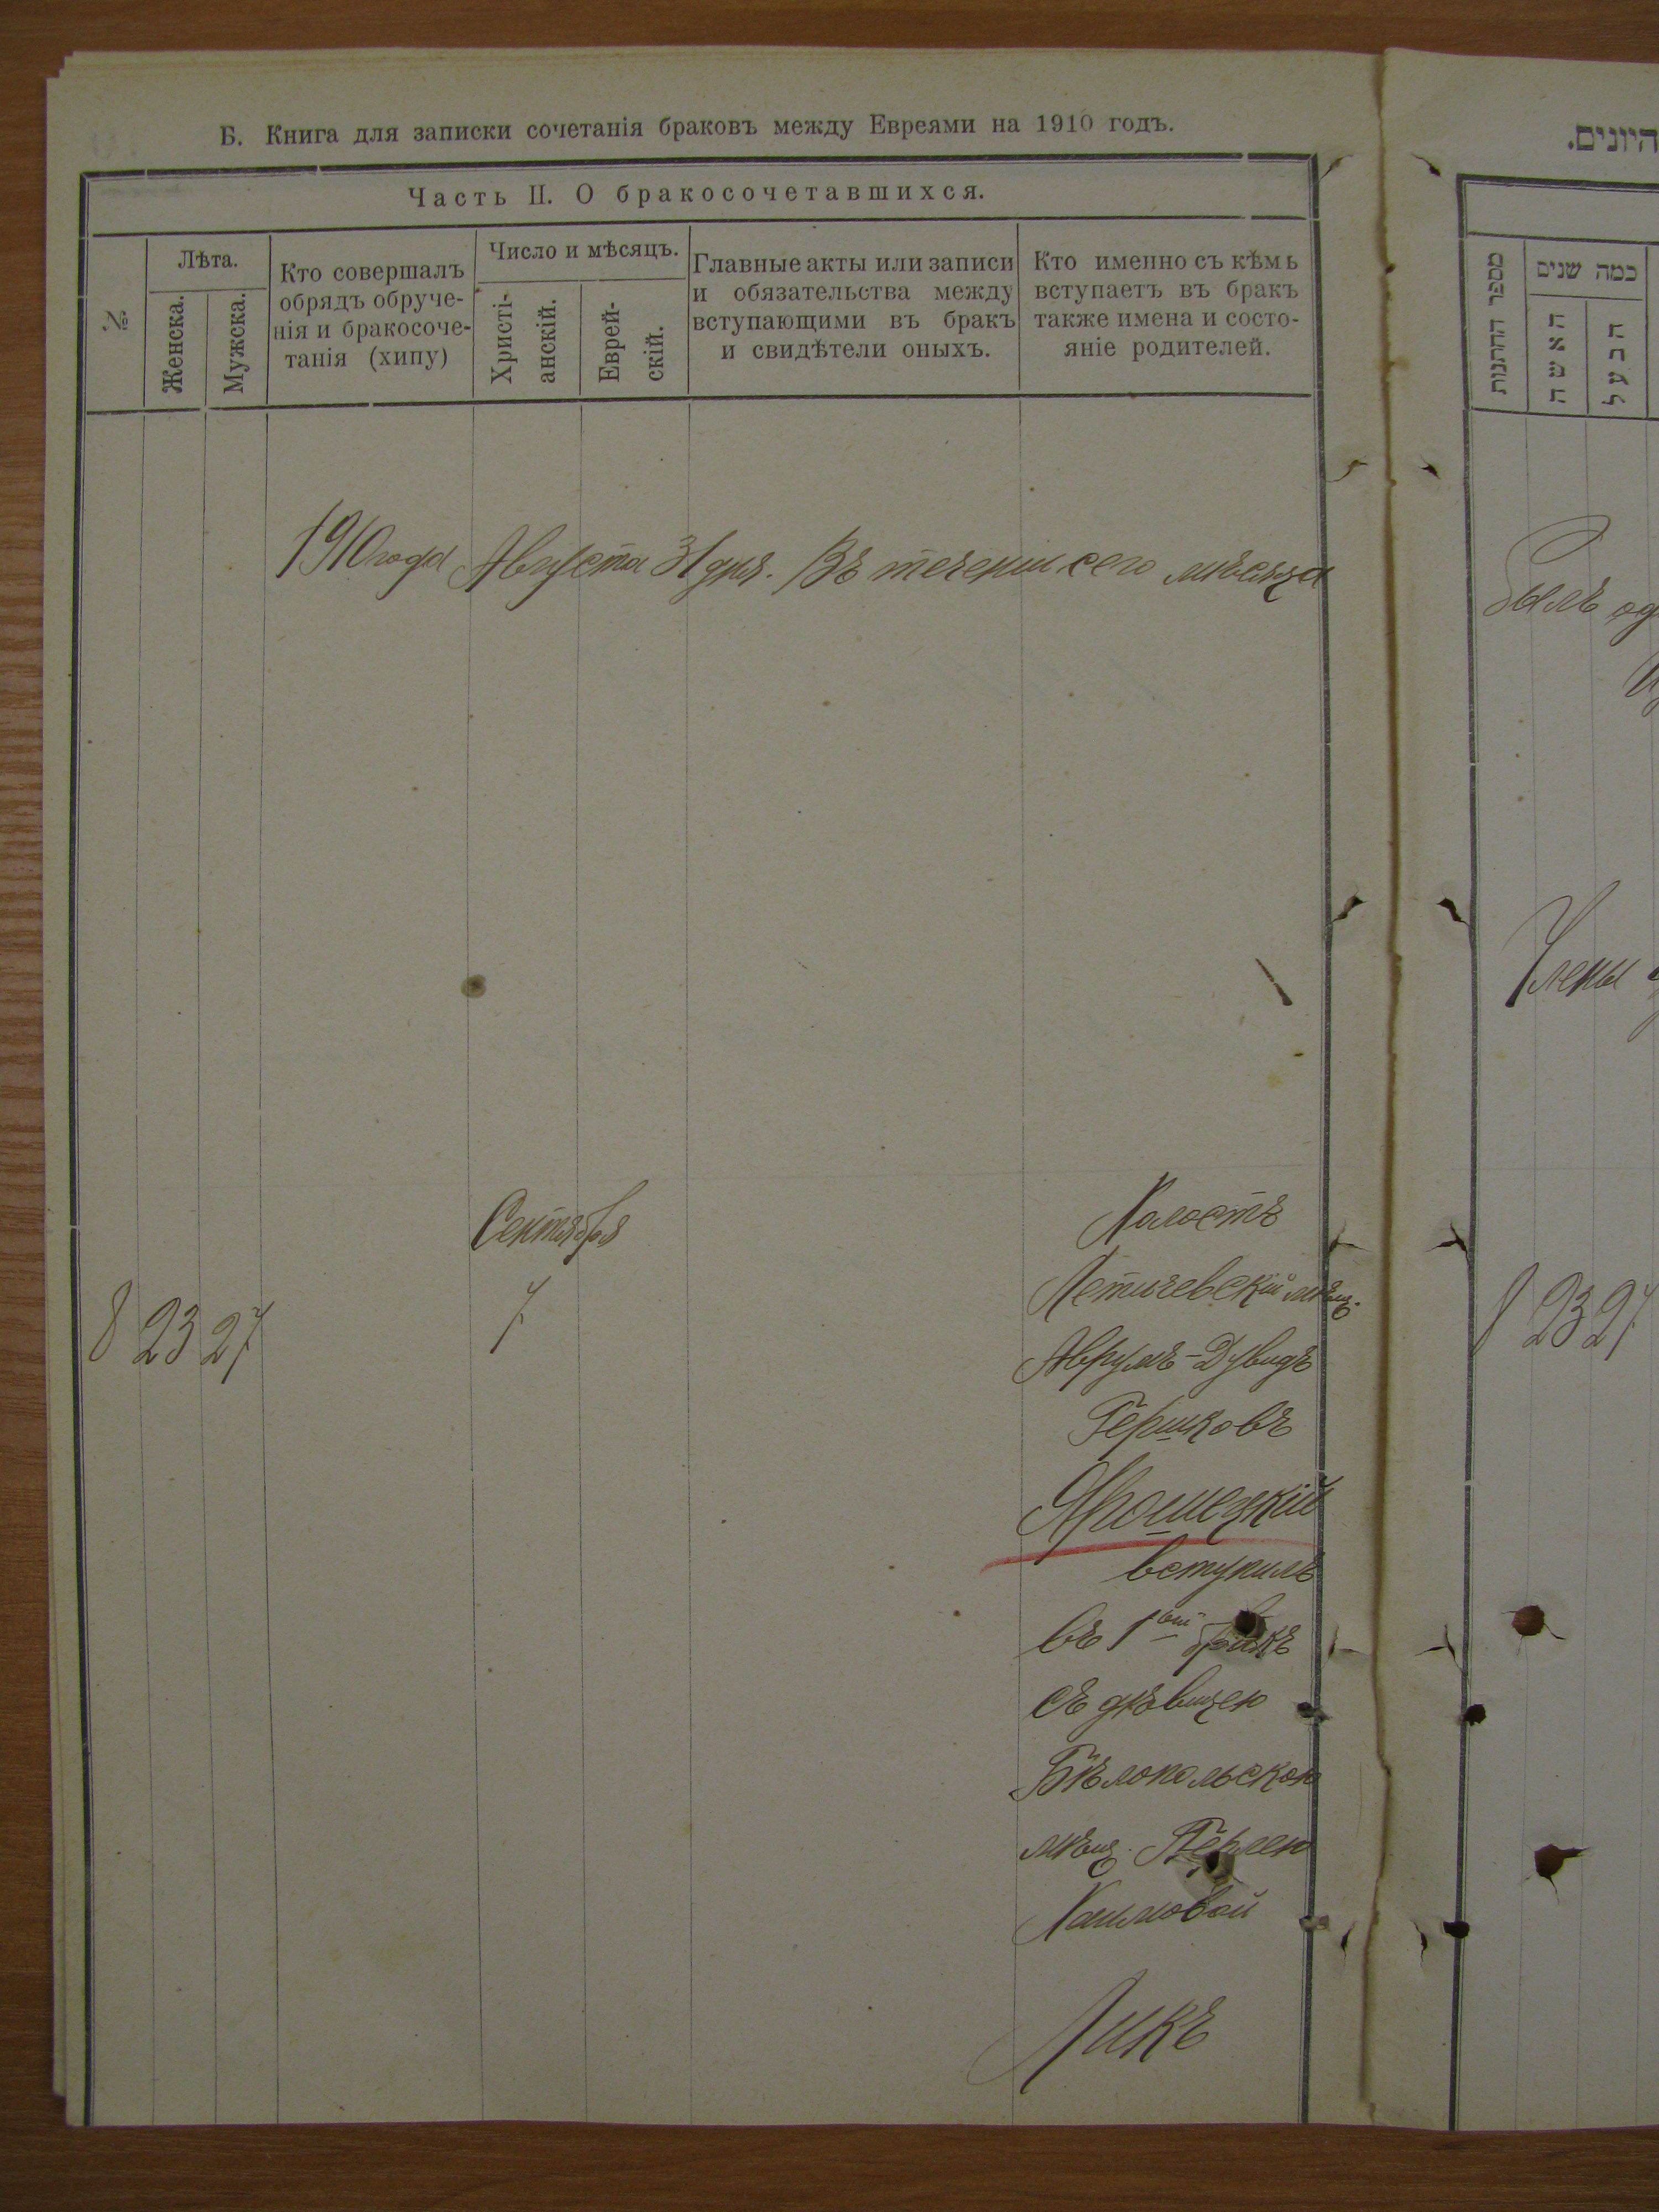 Б. Книга для записки сочетанія браковъ между Евреями на 1910 годъ.
Часть II. О бракосочетавшихся.
№
Лѣта.
Женска.
Мужска.
Кто совершалъ
обрядъ обруче-
нія и бракосоче-
танія (хипу)
Число и мѣсяцъ.
Христі-
анскій.
Еврей-
скій.
Главные акты или записи
и обязательства между
вступающими въ бракъ
и свидѣтели оныхъ.
Кто именно съ кѣмъ
вступаетъ въ бракъ
также имена и состо-
яніе родителей.
1910 года Августа 31 дня. Въ течении сего мѣсяца
Сентября
8 23 27 7
Холостъ
Летичевскій мѣщ.
Аврумъ-Дувидъ
Гершковъ
Ярошецкій
вступилъ
въ 1ый бракъ
съ дѣвицею
Бѣлопольскою
мѣщ. Перлею
Хаимовой
Ликъ
היונים.
מספר החתונות
כמה שנים
האשה
הבעל
былъ
Члены
8 23 27